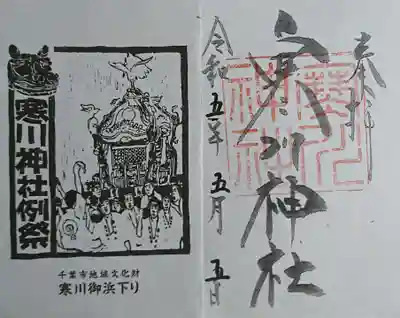 奉拝
寒川神社
令和五年五月五日
寒川神社例祭
千葉市地域文化財
寒川御浜下り